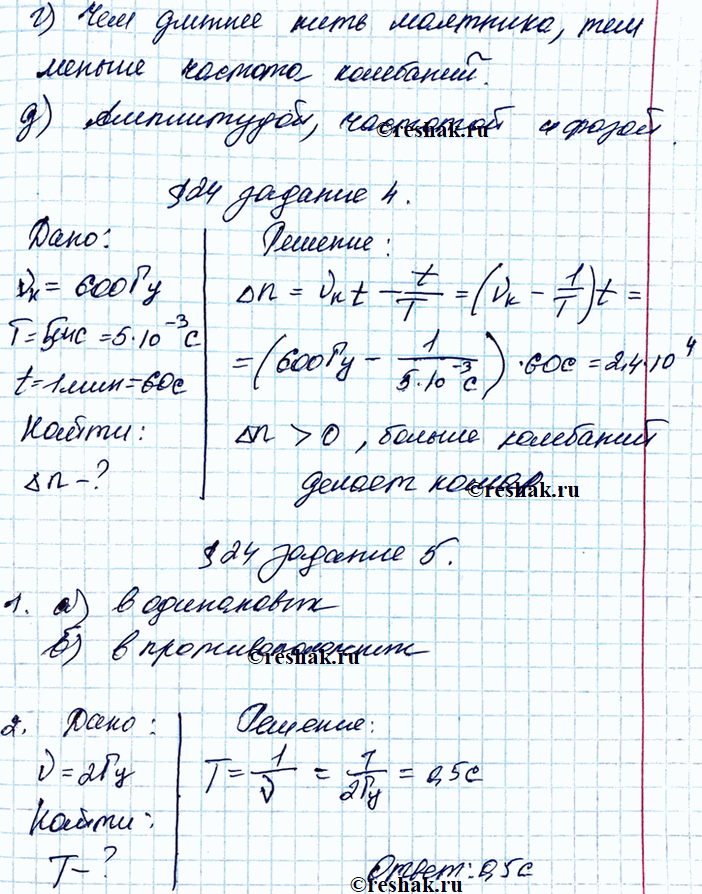 г) Чем длиннее нить маятника, тем
меньше частота колебаний.
д) Амплитудой, частотой и фазой.
©reshak.ru
§24 задание 4.
Дано:
νк = 600Гц
T = 5мс = 5·10⁻³с
t = 1мин = 60с
Найти:
Δn - ?
Решение:
Δn = νк t - t/T = (νк - 1/T) t =
= (600Гц - 1/(5·10⁻³с)) · 60с = 2,4·10⁴
Δn > 0, больше колебаний
делает комар.
©reshak.ru
§24 задание 5.
1. а) в одинаковых
б) в противоположных
©reshak.ru
2. Дано:
ν = 2Гц
Найти:
T - ?
Решение:
T = 1/ν = 1/2Гц = 0,5с
Ответ: 0,5с
©reshak.ru